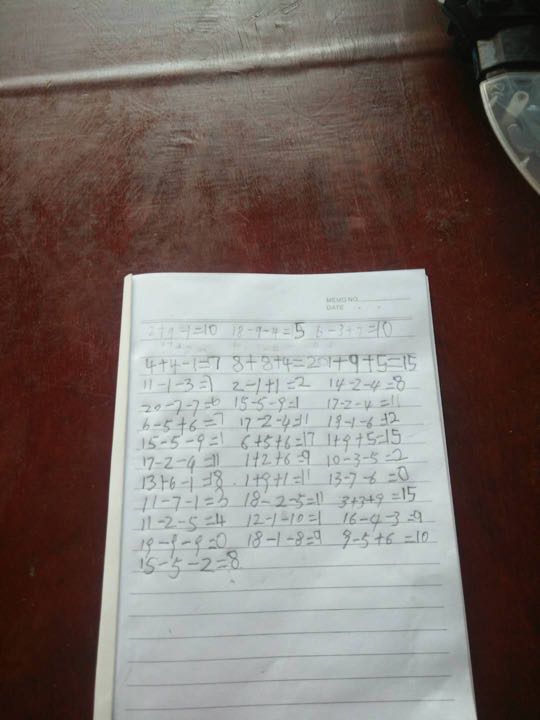 MEMO NO.
DATE
2+9-1=10 18-9-4=5 6-3+7=10
4+4-1=7 8+8+4=20 1+9+5=15
11-1-3=7 2-1+1=2 14-2-4=8
20-7-7=6 15-5-9=1 17-2-4=11
6-5+6=7 17-2-4=11 19-1-6=12
15-5-9=1 6+5+6=17 1+9+5=15
17-2-4=11 1+2+6=9 10-3-5=2
13+6-1=18 1+9+1=11 13-7-6=0
11-7-1=3 18-2-5=11 3+3+9=15
11-2-5=4 12-1-10=1 16-4-3=9
19-9-9=0 18-1-8=9 9-5+6=10
15-5-2=8